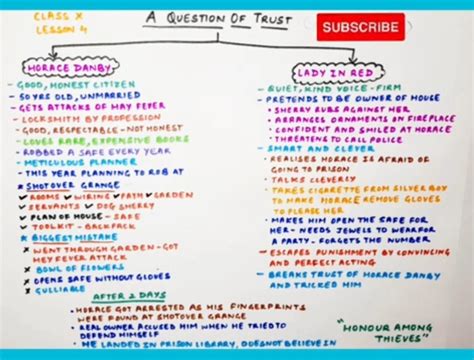 CLASS X
LESSON 4
A QUESTION OF TRUST
SUBSCRIBE
HORACE DANBY
- GOOD, HONEST CITIZEN
- 50 YRS OLD, UNMARRIED
- GETS ATTACKS OF HAY FEVER
- LOCKSMITH BY PROFESSION
- GOOD, RESPECTABLE - NOT HONEST
- LOVES RARE, EXPENSIVE BOOKS
- ROBBED A SAFE EVERY YEAR
- METICULOUS PLANNER
- THIS YEAR PLANNING TO ROB AT
* SHOTOVER GRANGE
✓ ROOMS ✓ WIRING ✓ PATH ✓ GARDEN
✓ SERVANTS ✓ DOG SHERRY
✓ PLAN OF HOUSE - SAFE
✓ TOOLKIT - BACKPACK
* BIGGEST MISTAKE
x WENT THROUGH GARDEN - GOT
HEY FEVER ATTACK
x BOWL OF FLOWERS
x OPENS SAFE WITHOUT GLOVES
x GULLIABLE
LADY IN RED
- QUIET, KIND VOICE - FIRM
- PRETENDS TO BE OWNER OF HOUSE
• SHERRY RUBS AGAINST HER
• ARRANGES ORNAMENTS ON FIREPLACE
• CONFIDENT AND SMILED AT HORACE
• THREATENS TO CALL POLICE
- SMART AND CLEVER
• REALISES HORACE IS AFRAID OF
GOING TO PRISON
• TALKS CLEVERLY
• TAKES CIGARETTE FROM SILVER BOX
TO MAKE HORACE REMOVE GLOVES
TO PLEASE HER
• MAKES HIM OPEN THE SAFE FOR
HER - NEEDS JEWELS TO WEAR FOR
A PARTY - FORGETS THE NUMBER
- ESCAPES PUNISHMENT BY CONVINCING
AND PERFECT ACTING
- BREAKS TRUST OF HORACE DANBY
AND TRICKED HIM
AFTER 2 DAYS
• HORACE GOT ARRESTED AS HIS FINGERPRINTS
WERE FOUND AT SHOTOVER GRANGE
• REAL OWNER ACCUSED HIM WHEN HE TRIED TO
DEFEND HIMSELF
• HE LANDED IN PRISON LIBRARY, DOES NOT BELIEVE IN
"HONOUR AMONG
THIEVES"